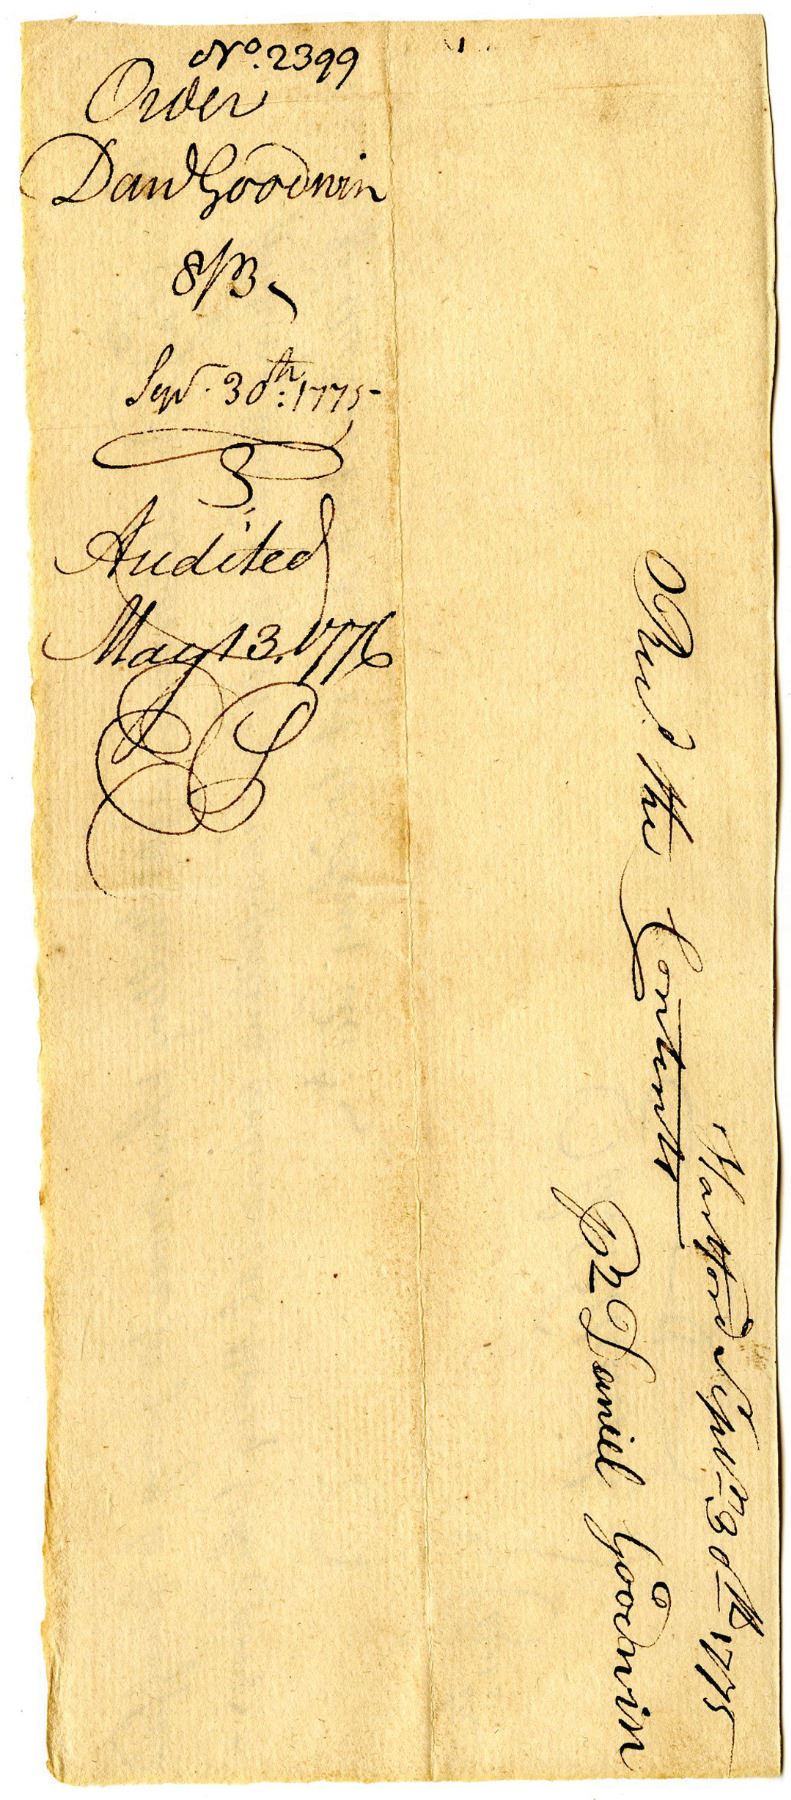 No. 2399
Order
Danl Goodwin
8/3
Sepr. 30th: 1775
Audited
May 13. 1776
Hartford Sepr. 30th 1775
Recd. the Contents
Pr Daniel Goodwin